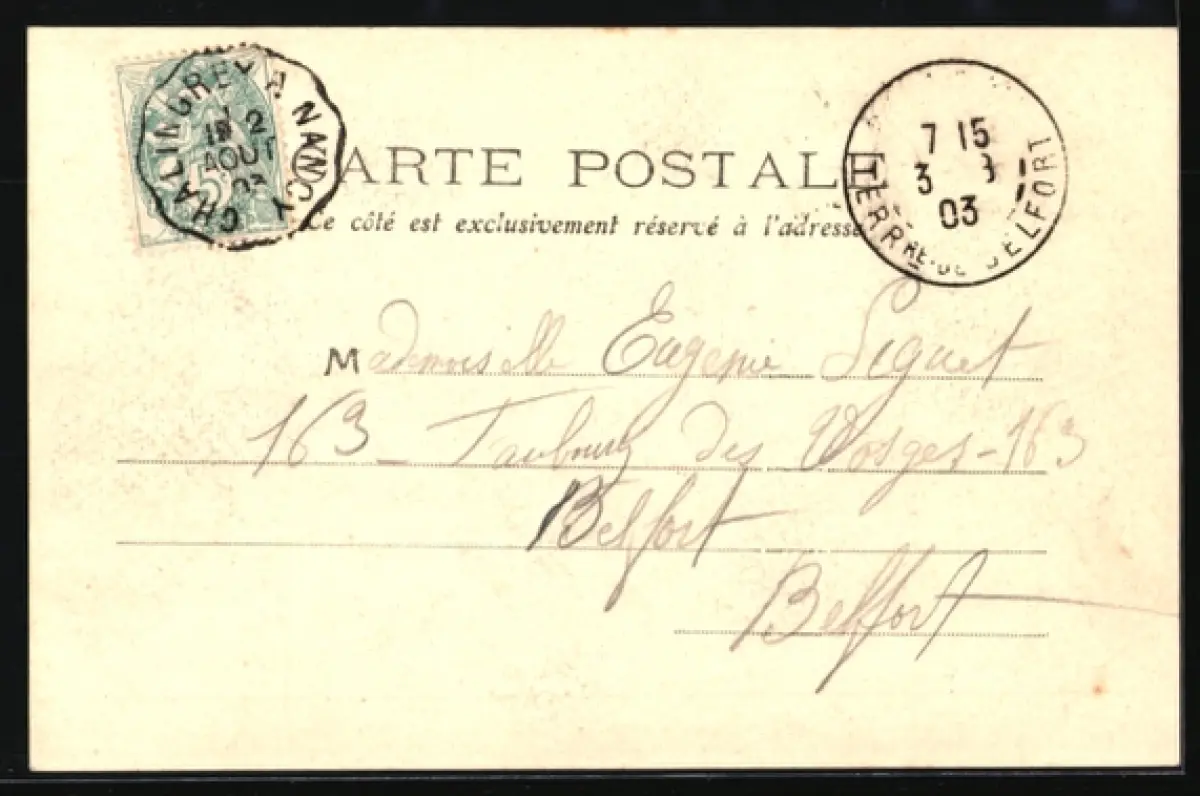 CHALINDREY A NANCY
2
AOUT
03
CARTE POSTALE
Ce côté est exclusivement réservé à l'adresse
7 15
3
03
BELFORT
TERRRE DE BELFORT
Mademoiselle Eugénie Siguet
163 - Faubourg des Vosges - 163
Belfort
Belfort